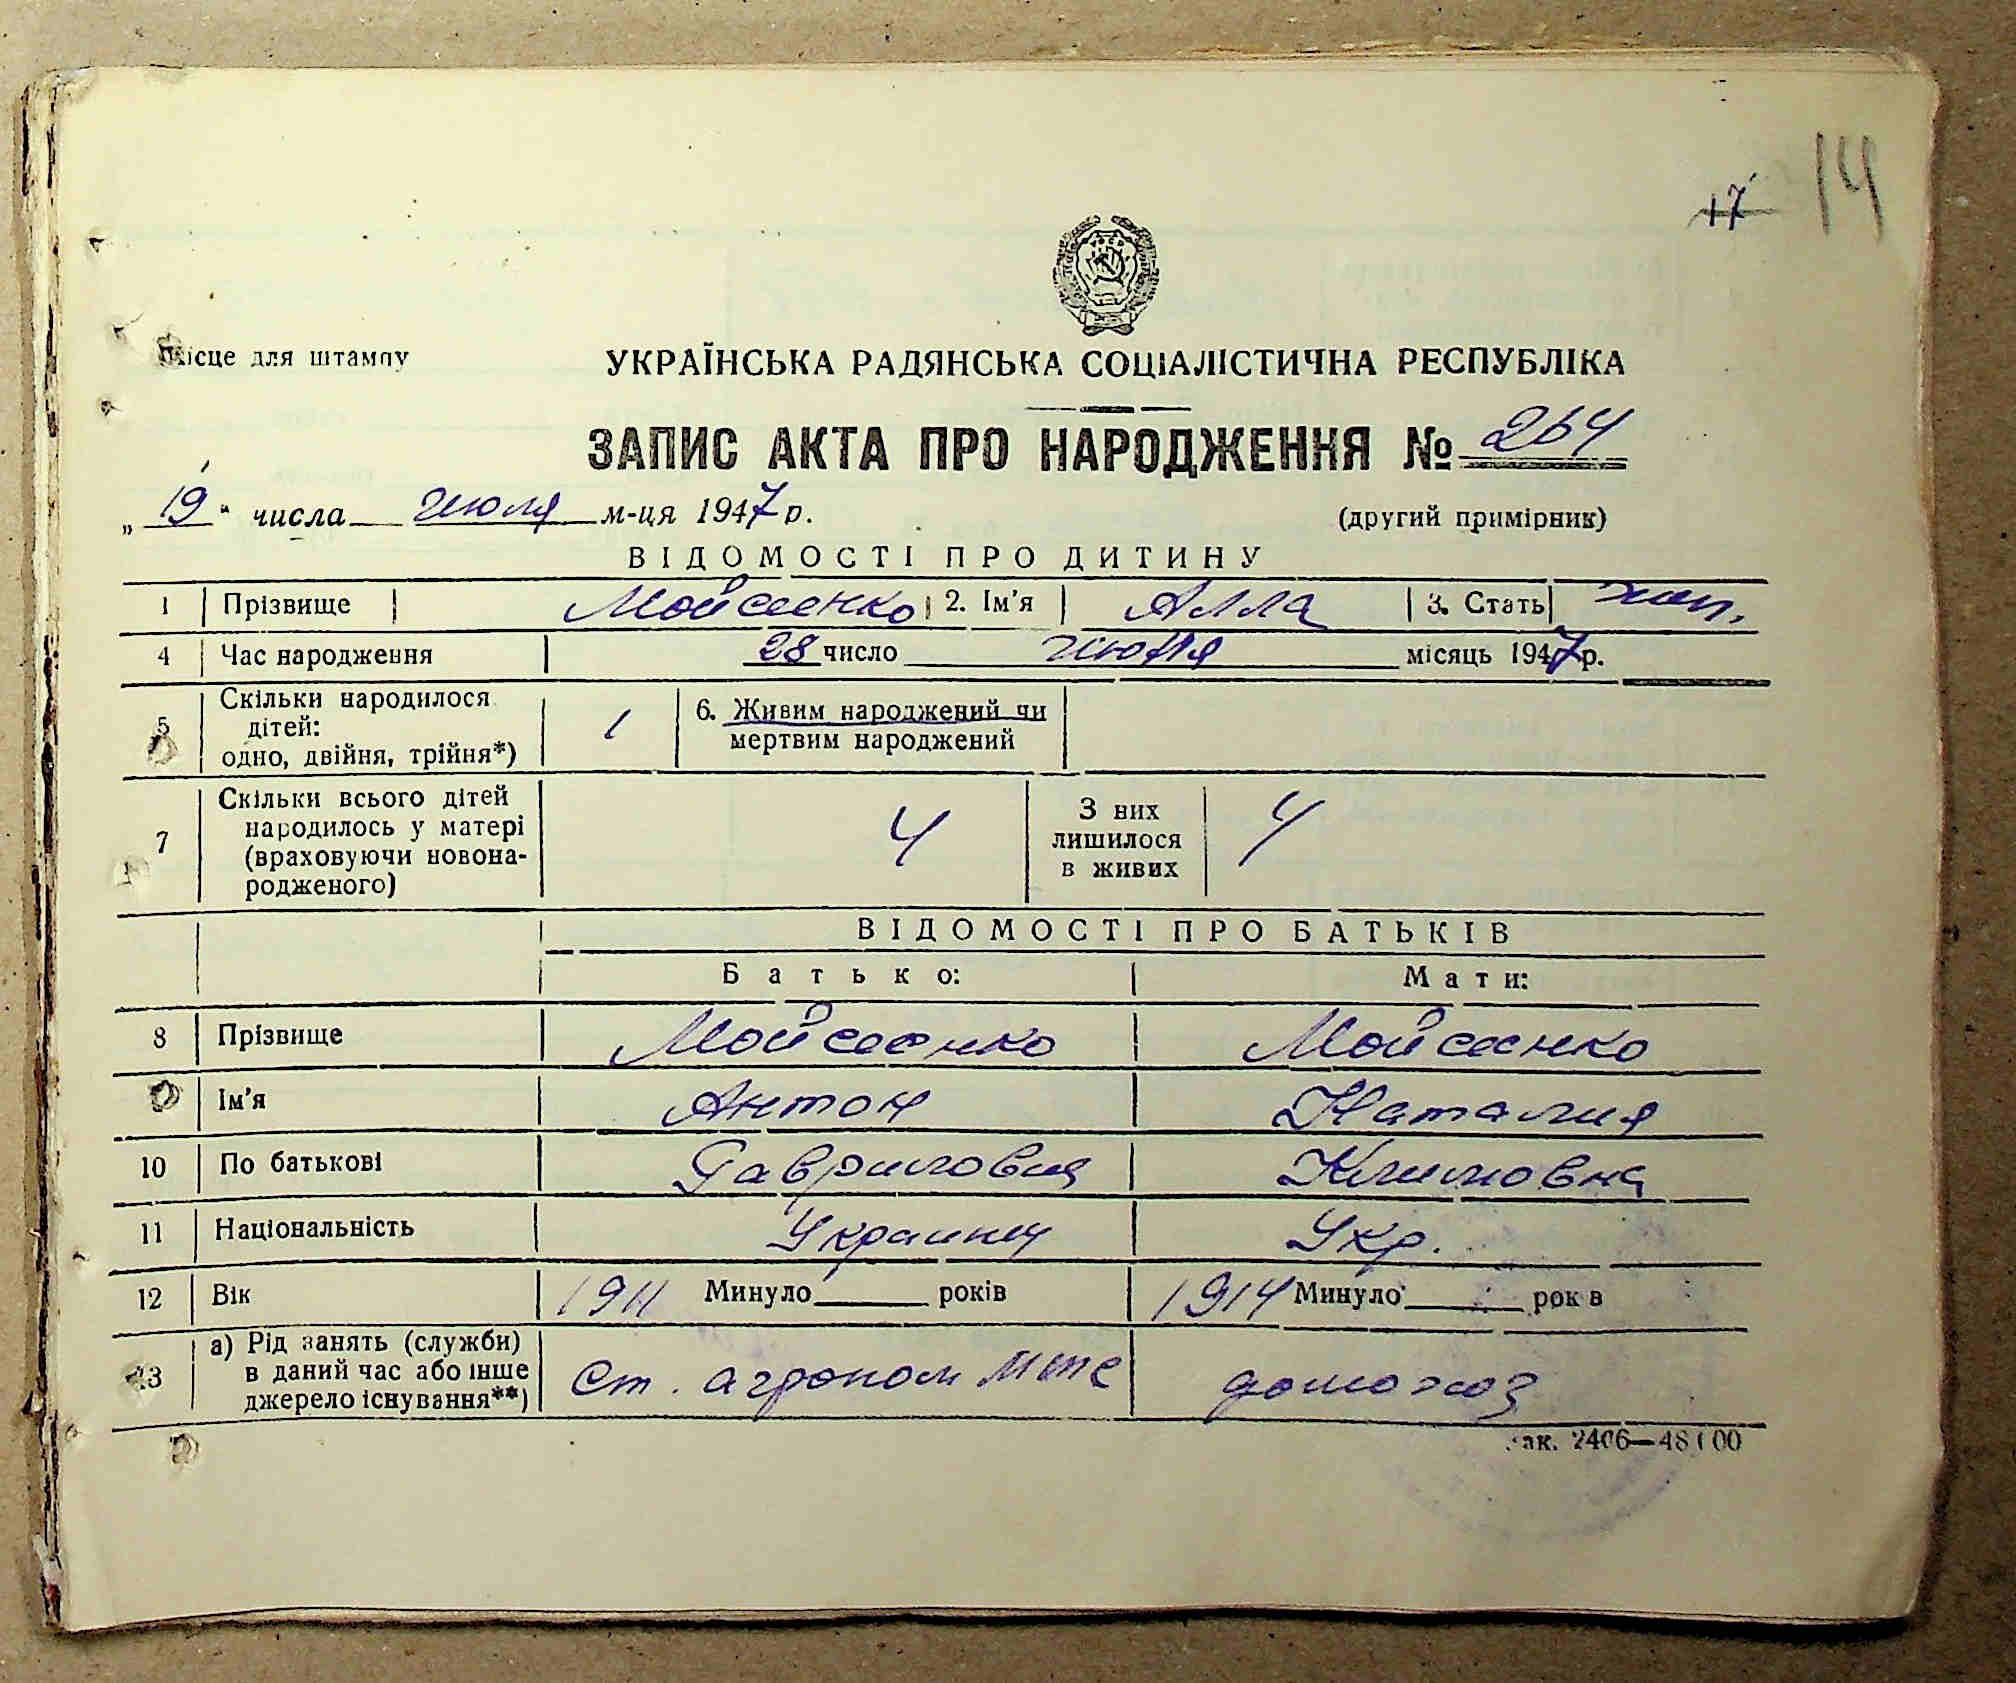 17 14
Місце для штампу
УКРАЇНСЬКА РАДЯНСЬКА СОЦІАЛІСТИЧНА РЕСПУБЛІКА
ЗАПИС АКТА ПРО НАРОДЖЕННЯ № 264
„19“ числа июля м-ця 1947 р.
(другий примірник)
ВІДОМОСТІ ПРО ДИТИНУ
1 Прізвище Мойсеенко 2. Ім'я Алла 3. Стать жен.
4 Час народження 28 число июня місяць 1947 р.
5 Скільки народилося дітей: одно, двійня, трійня*) 1 6. Живим народжений чи мертвим народжений
7 Скільки всього дітей народилось у матері (враховуючи новонародженого) 4 З них лишилося в живих 4
ВІДОМОСТІ ПРО БАТЬКІВ
Батько: Мати:
8 Прізвище Мойсеенко Мойсеенко
Ім'я Антон Наталия
10 По батькові Гаврилович Климовна
11 Національність Украинец Укр.
12 Вік 1911 Минуло років 1914 Минуло рок в
13 а) Рід занять (служби) в даний час або інше джерело існування**) Ст. агроном МТС домохоз
Зак. 2406—48